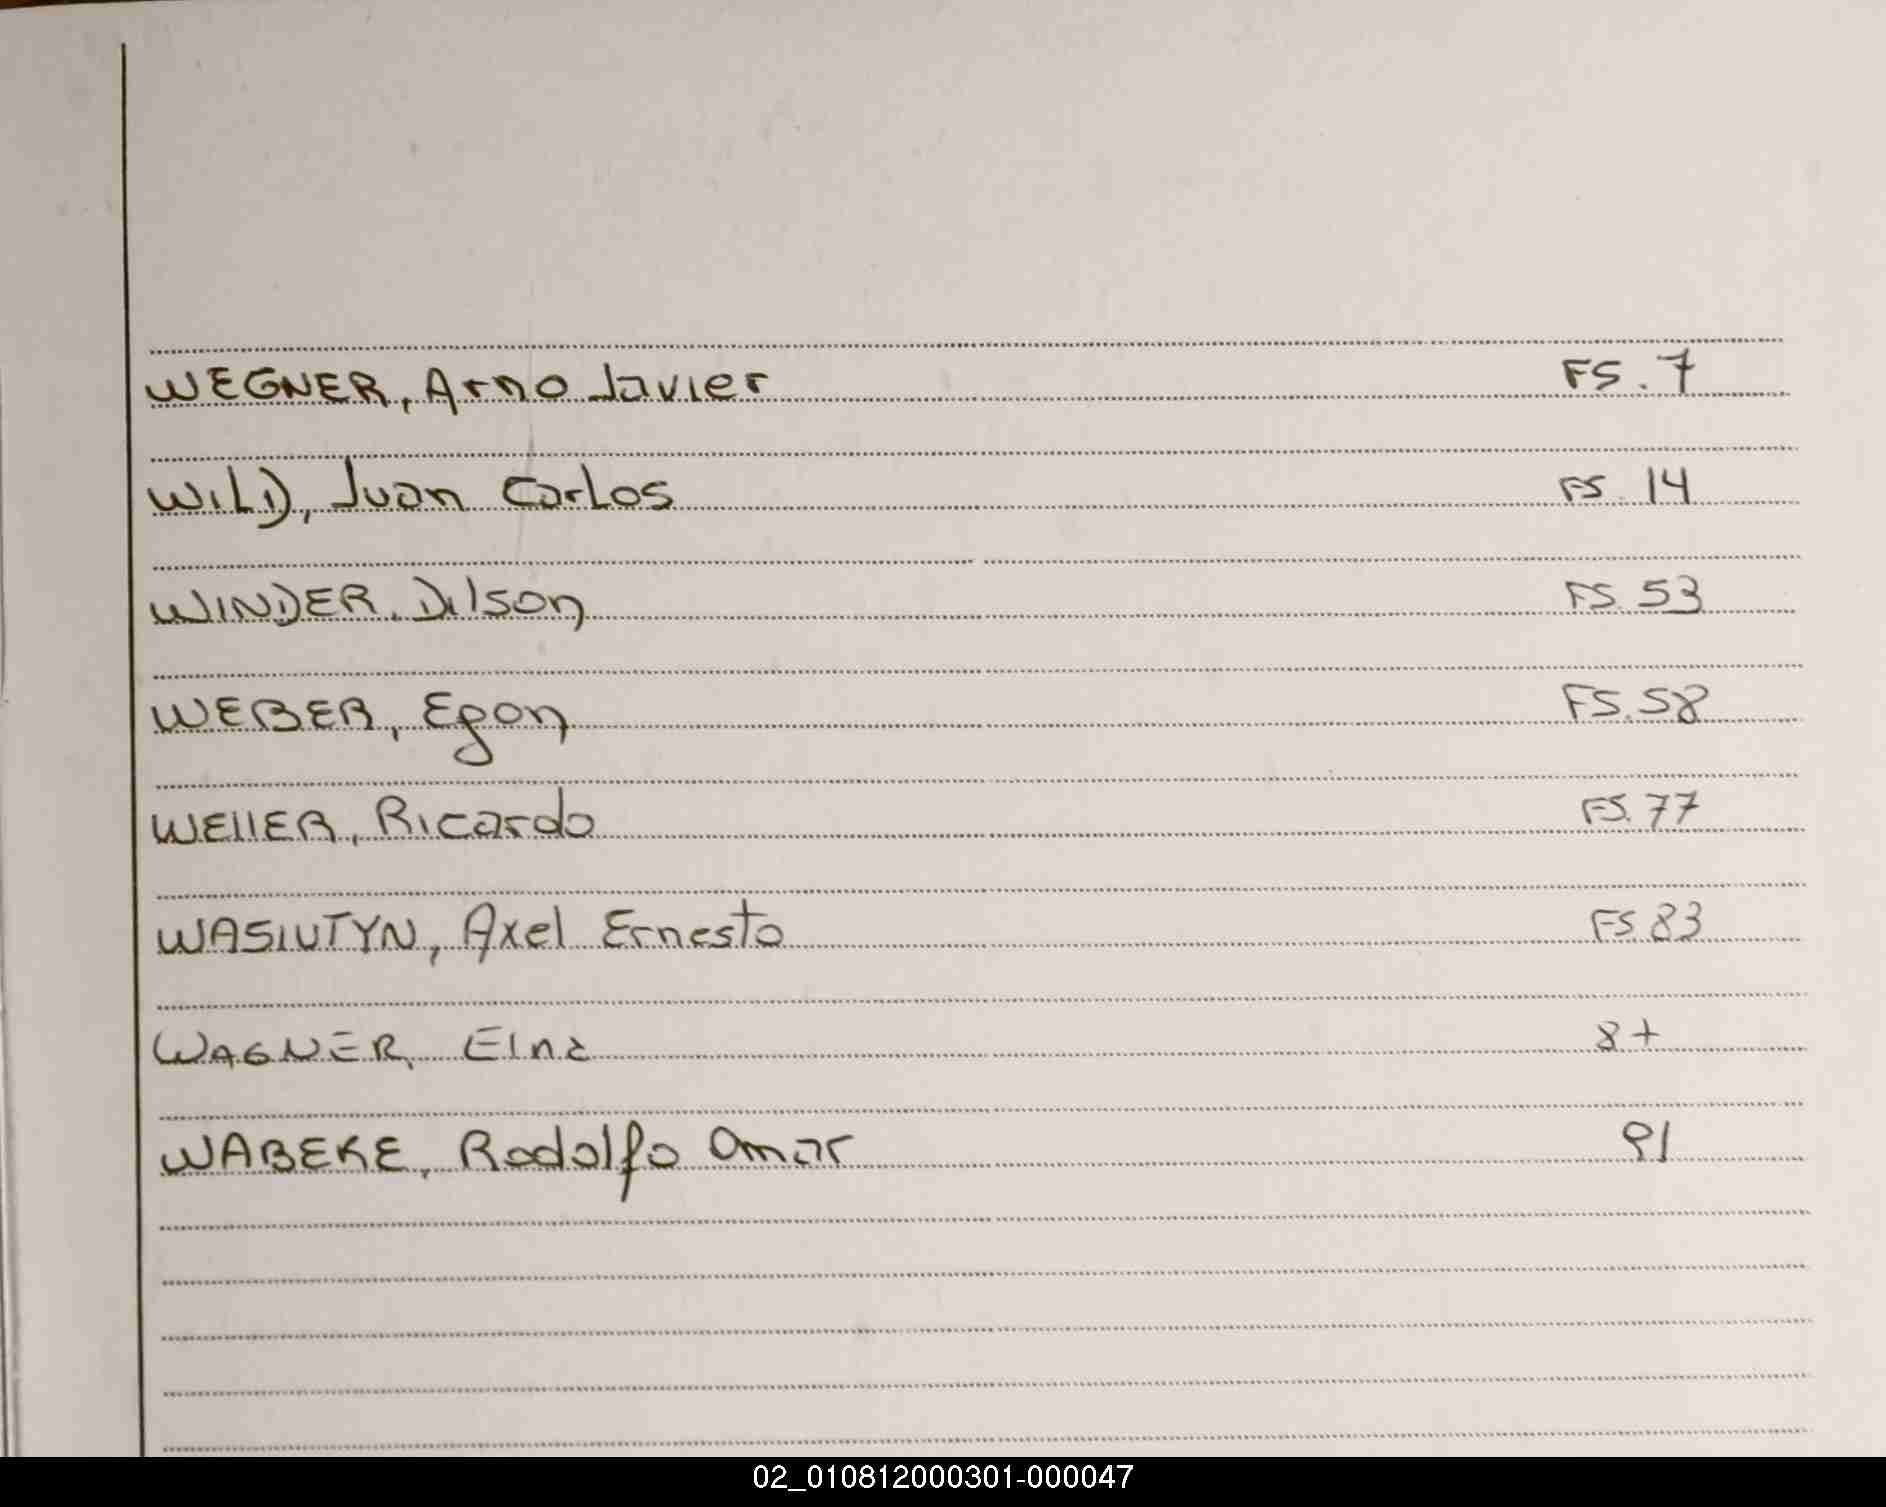 WEGNER, Arno Javier FS. 7
WILD, Juan Carlos FS. 14
WINDER, Dilson FS. 53
WEBER, Egon FS. 58
WEllER, Ricardo FS. 77
WASIUTYN, Axel Ernesto FS. 83
WAGNER, Elna 8+
WABEKE, Rodolfo Omar 91
02_010812000301-000047